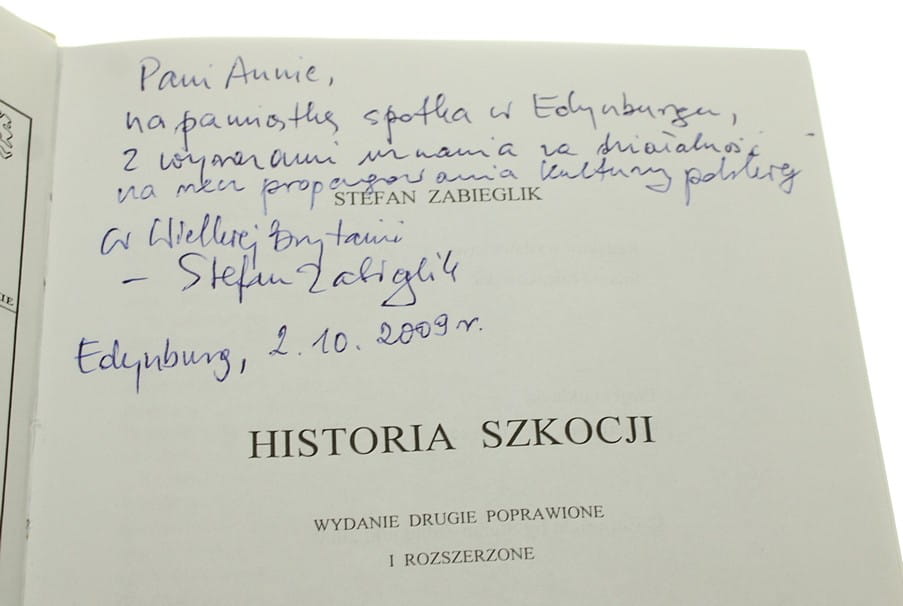 Pani Annie,
na pamiątkę spotka w Edynburgu,
z wyrazami uznania za działalność
na rzecz propagowania kultury polskiej
STEFAN ZABIEGLIK
w Wielkiej Brytanii
– Stefan Zabieglik
Edynburg, 2.10.2009 r.
HISTORIA SZKOCJI
WYDANIE DRUGIE POPRAWIONE
I ROZSZERZONE
IE